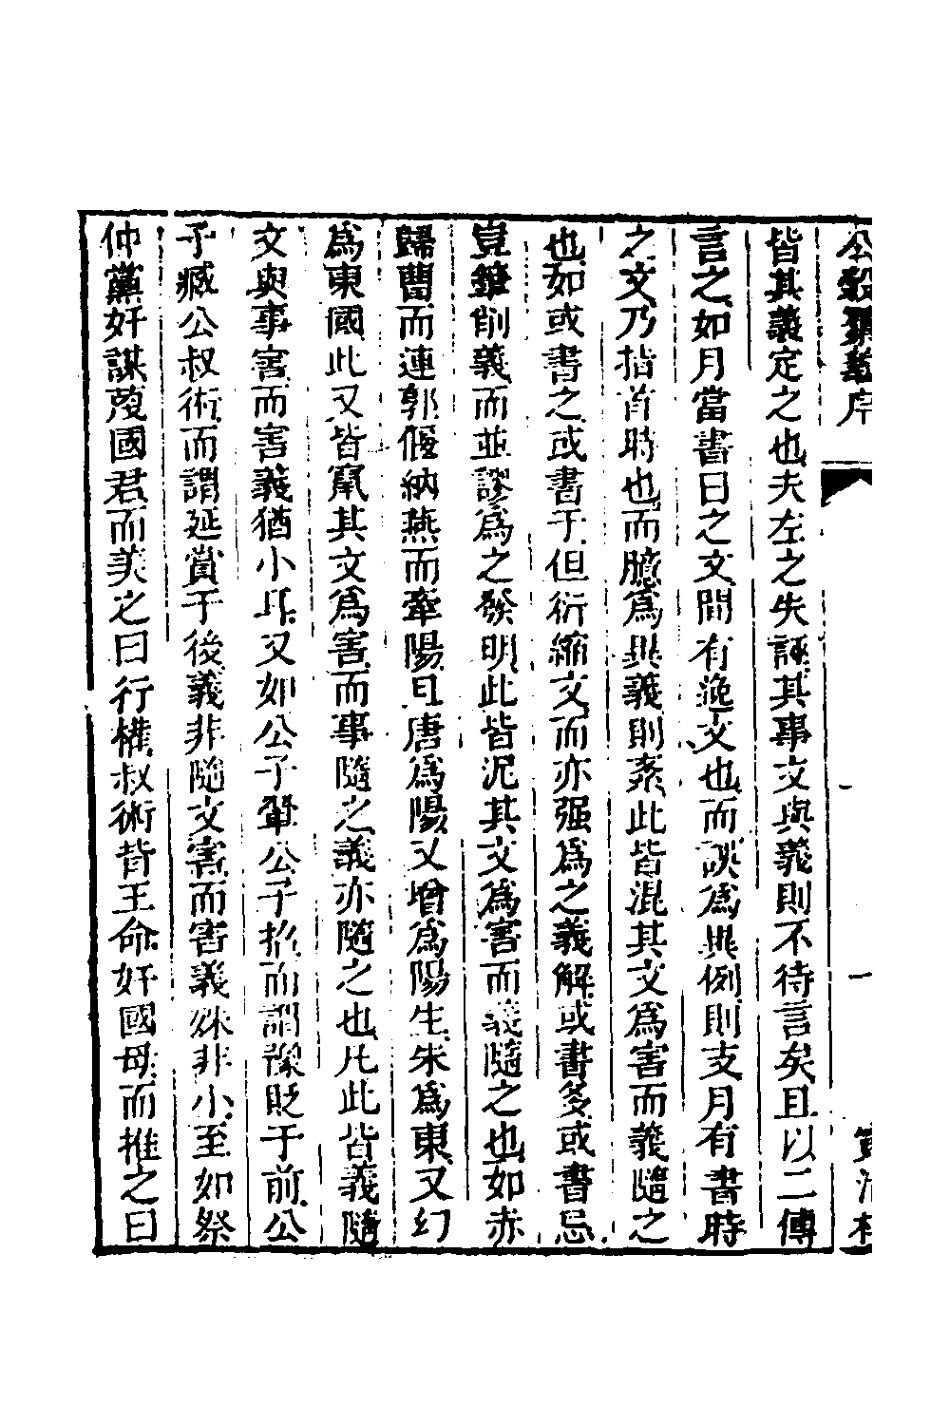 公穀彙義序
皆其義定之也夫左之失誣其事文與義則不待言矣且以二傳
言之如月當書日之文間有逸文也而誤爲異例則支月有書時
之文乃指首時也而臆爲異義則紊此皆混其文爲害而義隨之
也如或書之或書于但衍縮文而亦强爲之義解或書多或書忌
豈筆削義而並謬爲之發明此皆泥其文爲害而義隨之也如赤
歸曹而連郭偃納燕而牽陽且唐爲陽又增爲陽生朱爲東又幻
爲東國此又皆竄其文爲害而事隨之義亦隨之也凡此皆義隨
文與事害而害義猶小耳又如公子翬公子招而謂豫貶于前公
子臧公叔術而謂延賞于後義非隨文害而害義殊非小至如祭
仲黨奸謀廢國君而美之曰行權叔術昔王命奸國母而推之曰